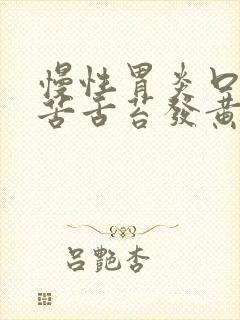 慢性胃炎口
苦舌苔發黃
呂艷杏